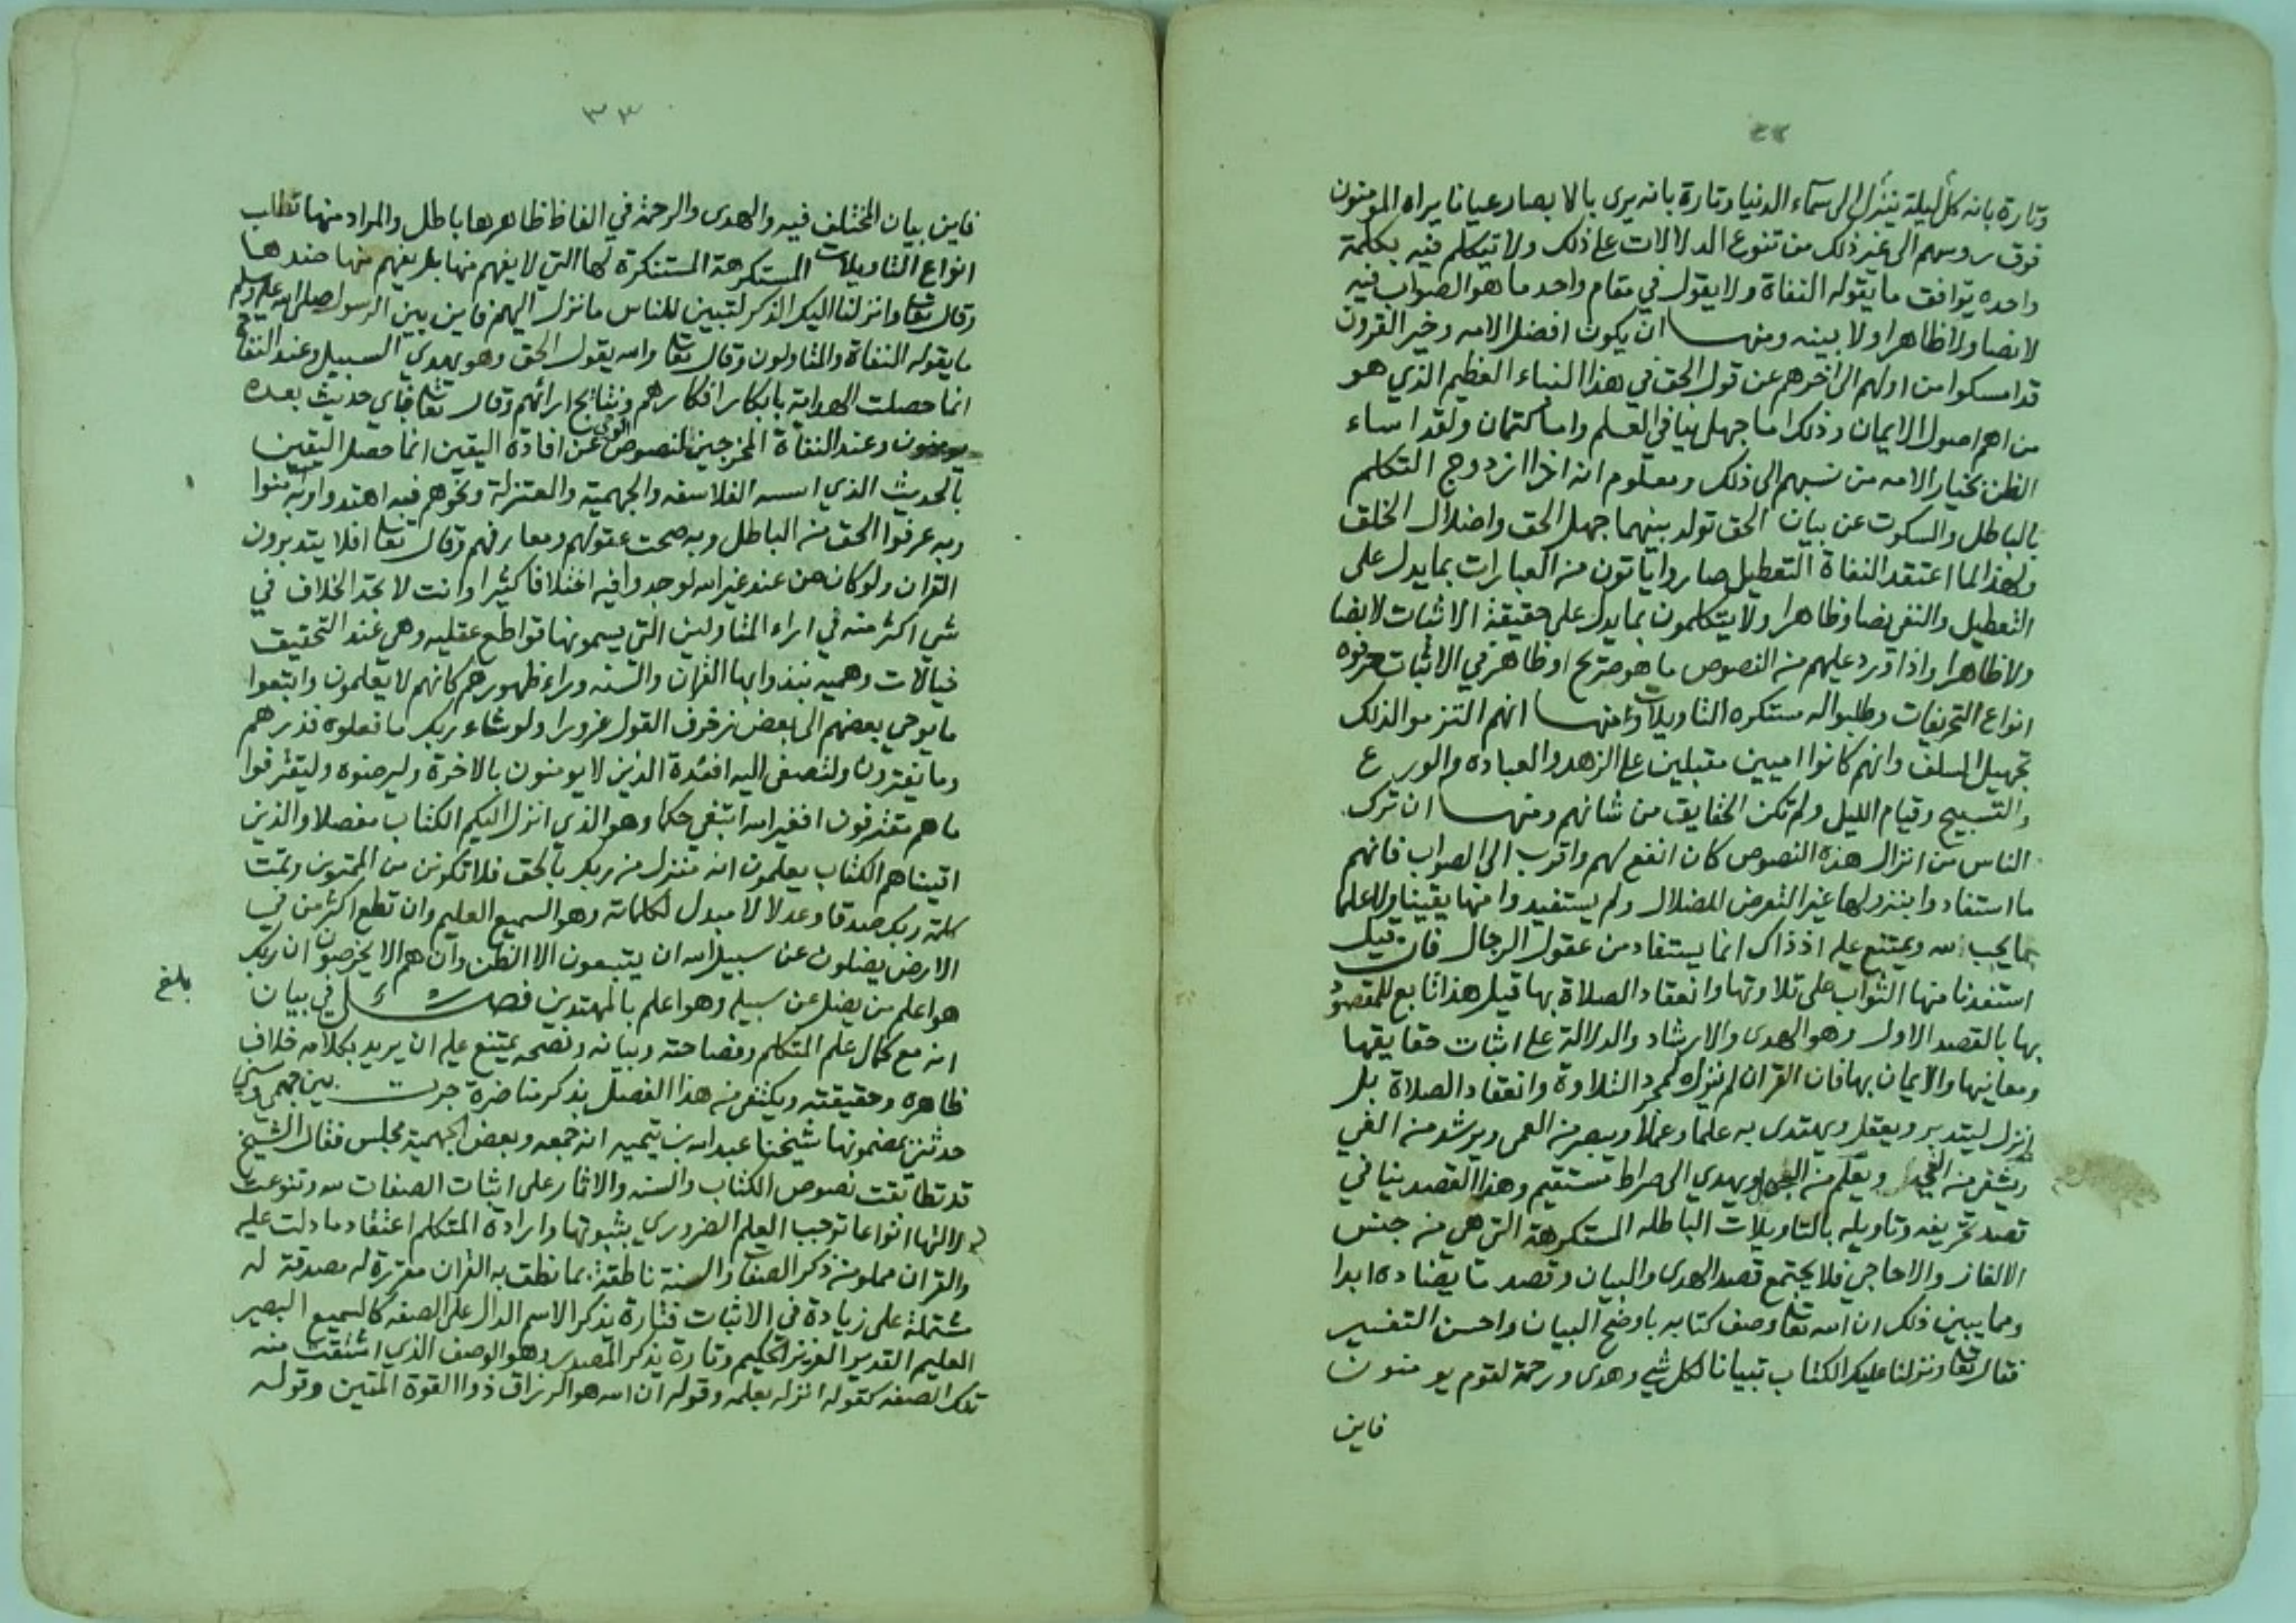 وتارة بانه كل ليلة ينزل الى سماء الدنيا وتارة بانه يرى بالابصار عيانا يراه المومنون
فوق روسهم الى غير ذلك من تنوع الدلالات على ذلك ولا تيكلم فيه بكلمة
واحده توافق ما يقوله النفاة ولا يقول في مقام واحد ما هو الصواب فيه
لا نصا ولا ظاهرا ولا بينه ومنها ان يكون افضل الامه وخير القرون
قد امسكوا من اولهم الى اخرهم عن قول الحق في هذا النباء العظيم الذي هو
من اهم اصول الايمان وذلك اما جهل ينافي العلم واما كتمان ولقد اساء
الظن بخيار الامه من نسبهم الى ذلك ومعلوم انه اذا ازدوج التكلم
بالباطل والسكوت عن بيان الحق تولد بينهما جهل الحق واضلال الخلق
ولهذا لما اعتقد النفاة التعطيل صاروا ياتون من العبارات بما يدل على
التعطيل والنفي نصا وظاهرا ولا يتكلمون بما يدل على حقيقة الاثبات لا نصا
ولا ظاهرا واذا ورد عليهم من النصوص ما هو صريح او ظاهر في الاثبات حرفوه
انواع التحريفات وطلبوا له مستكره التاويلات ومنها انهم التزموا لذلك
تجهيل السلف وانهم كانوا اميين مقبلين على الزهد والعباده والورع
والتسبيح وقيام الليل ولم تكن الحقايق من شانهم ومنها ان ترك
الناس من انزال هذه النصوص كان انفع لهم واقرب الى الصواب فانهم
ما استفادوا بنزولها غير التعرض للضلال ولم يستفيدوا منها يقينا ولا علما
بما يجب لله ويمتنع عليه اذ ذاك انما يستفاد من عقول الرجال فان قيل
استفدنا منها الثواب على تلاوتها وانعقاد الصلاة بها قيل هذا تابع للمقصود
بها بالقصد الاول وهو الهدى والارشاد والدلالة على اثبات حقايقها
ومعانيها والايمان بها فان القران لم ينزل لمجرد التلاوة وانعقاد الصلاة بل
انزل ليتدبر ويعقل ويهتدى به علما وعملا ويبصر من العمى ويرشد من الغي
ويشفي من الغي ويعلم من الجهل ويهدي الى صراط مستقيم وهذا القصد ينافي
قصد تحريفه وتاويله بالتاويلات الباطله المستكرهة التي هي من جنس
الالغاز والاحاجي فلا يجتمع قصد الهدى والبيان وقصد ما يضاده ابدا
ومما يبين ذلك ان الله تعا وصف كتابه باوضح البيان واحسن التفسير
فقال تعا ونزلنا عليك الكتاب تبيانا لكل شي وهدى ورحمة لقوم يومنون
فاين
٣٣
فاين بيان المختلف فيه والهدى والرحمة في الفاظ ظاهرها باطل والمراد منها تطلب
انواع التاويلات المستكرهة المستنكرة لها التي لا يفهم منها بل يفهم منها ضدها
وقال تعا وانزلنا اليك الذكر لتبين للناس ما نزل اليهم فاين بين الرسول صلى الله عليه وسلم
ما يقوله النفاة والمتاولون وقال تعا والله يقول الحق وهو يهدي السبيل وعند النفاة
انما حصلت الهداية بابكار افكارهم ونتايج ارائهم وقال تعا فباي حديث بعده
يومنون وعند النفاة المخرجين لنصوص الوحي عن افادة اليقين انما حصل اليقين
بالحديث الذي اسسه الفلاسفه والجهمية والمعتزلة ونحوهم فبه اهتدوا وبه امنوا
وبه عرفوا الحق من الباطل وبه صحت عقولهم ومعارفهم وقال تعا افلا يتدبرون
القران ولو كان من عند غير الله لوجدوا فيه اختلافا كثيرا وانت لا تجد الخلاف في
شي اكثر منه في اراء المتاولين التي يسمونها قواطع عقليه وهي عند التحقيق
خيالات وهميه نبذوا بها القران والسنه وراء ظهورهم كانهم لا يعلمون واتبعوا
ما يوحي بعضهم الى بعض زخرف القول غرورا ولو شاء ربك ما فعلوه فذرهم
وما يفترون ولتصغى اليه افئدة الذين لا يومنون بالاخرة وليرضوه وليقترفوا
ما هم مقترفون افغير الله ابتغي حكما وهو الذي انزل اليكم الكتاب مفصلا والذين
اتيناهم الكتاب يعلمون انه منزل من ربك بالحق فلا تكونن من الممترين وتمت
كلمة ربك صدقا وعدلا لا مبدل لكلماته وهو السميع العليم وان تطع اكثر من في
الارض يضلوك عن سبيل الله ان يتبعون الا الظن وان هم الا يخرصون ان ربك
هو اعلم من يضل عن سبيله وهو اعلم بالمهتدين فصل في بيان
بلغ
انه مع كمال علم المتكلم وفصاحته وبيانه ونصحه يمتنع عليه ان يريد بكلامه خلاف
ظاهره وحقيقته ويكتفى من هذا الفصل بذكر مناضرة جرت بين جهمي وسني
حدثني بمضمونها شيخنا عبد الله بن تيميه انه جمعه وبعض الجهمية مجلس فقال الشيخ
قد تطابقت نصوص الكتاب والسنه والاثار على اثبات الصفات لله وتنوعت
دلالتها انواعا توجب العلم الضروري بثبوتها وارادة المتكلم اعتقاد ما دلت عليه
والقران مملو من ذكر الصفات والسنة ناطقة بما نطق به القران مقررة له مصدقة له
مشتملة على زيادة في الاثبات فتارة بذكر الاسم الدال على الصفه كالسميع البصير
العليم القدير العزيز الحكيم وتارة بذكر المصدر وهو الوصف الذي اشتقت منه
تلك الصفه كقوله انزله بعلمه وقوله ان الله هو الرزاق ذوا القوة المتين وقوله